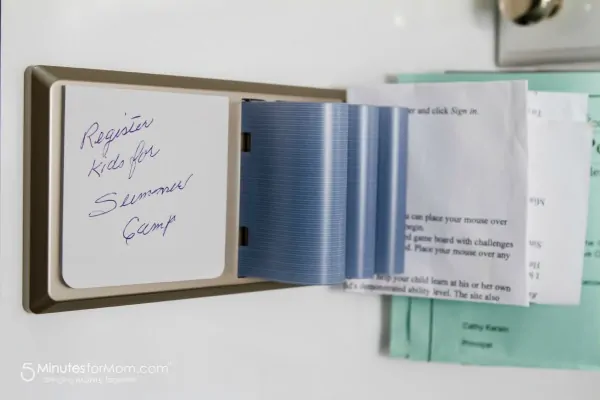 Register
Kids for
Summer
Camp
er and click Sign in.
u can place your mouse over
begin.
ed game board with challenges
d. Place your mouse over any
help your child learn at his or her own
d's demonstrated ability level. The site also
Cathy
Principal
5MinutesforMom.com